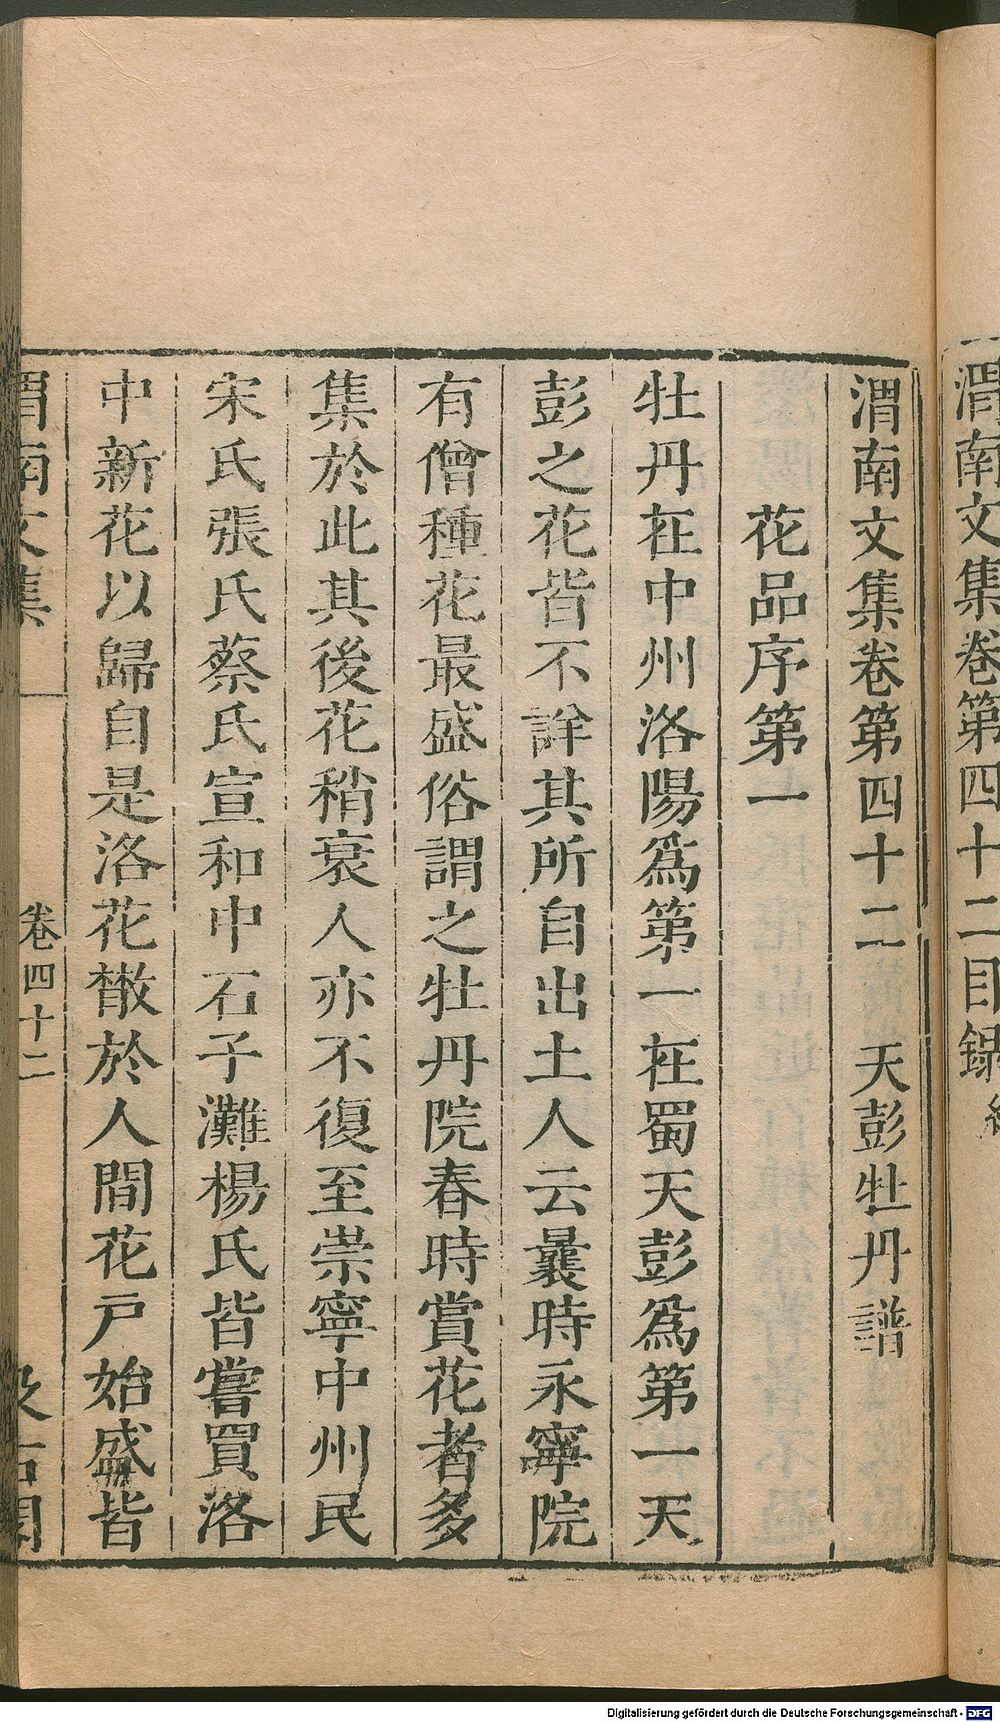 渭南文集卷第四十二目錄
渭南文集卷第四十二　天彭牡丹譜
花品序第一
牡丹在中州洛陽爲第一在蜀天彭爲第一天
彭之花皆不詳其所自出土人云曩時永寧院
有僧種花最盛俗謂之牡丹院春時賞花者多
集於此其後花稍衰人亦不復至崇寧中州民
宋氏張氏蔡氏宣和中石子灘楊氏皆嘗買洛
中新花以歸自是洛花散於人間花戸始盛皆
渭南文集　卷四十二
Digitalisierung gefördert durch die Deutsche Forschungsgemeinschaft - DFG